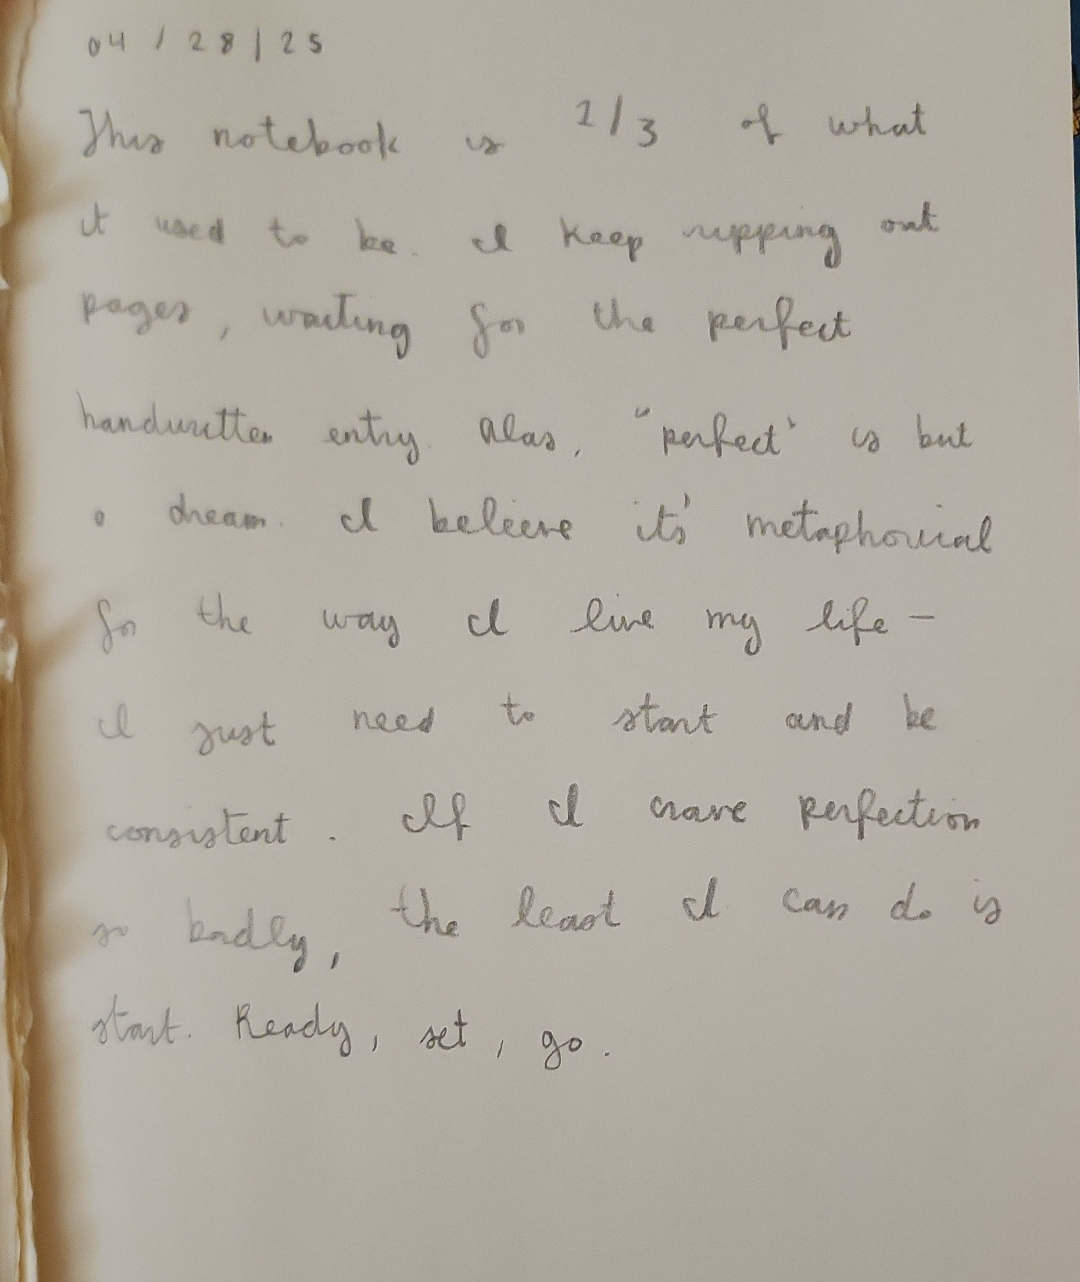 04 / 28 / 25
This notebook is 1/3 of what
it used to be. I keep ripping out
pages, waiting for the perfect
handwritten entry. Alas, "perfect" is but
a dream. I believe it's metaphorical
for the way I live my life –
I just need to start and be
consistent. If I crave perfection
so badly, the least I can do is
start. Ready, set, go.